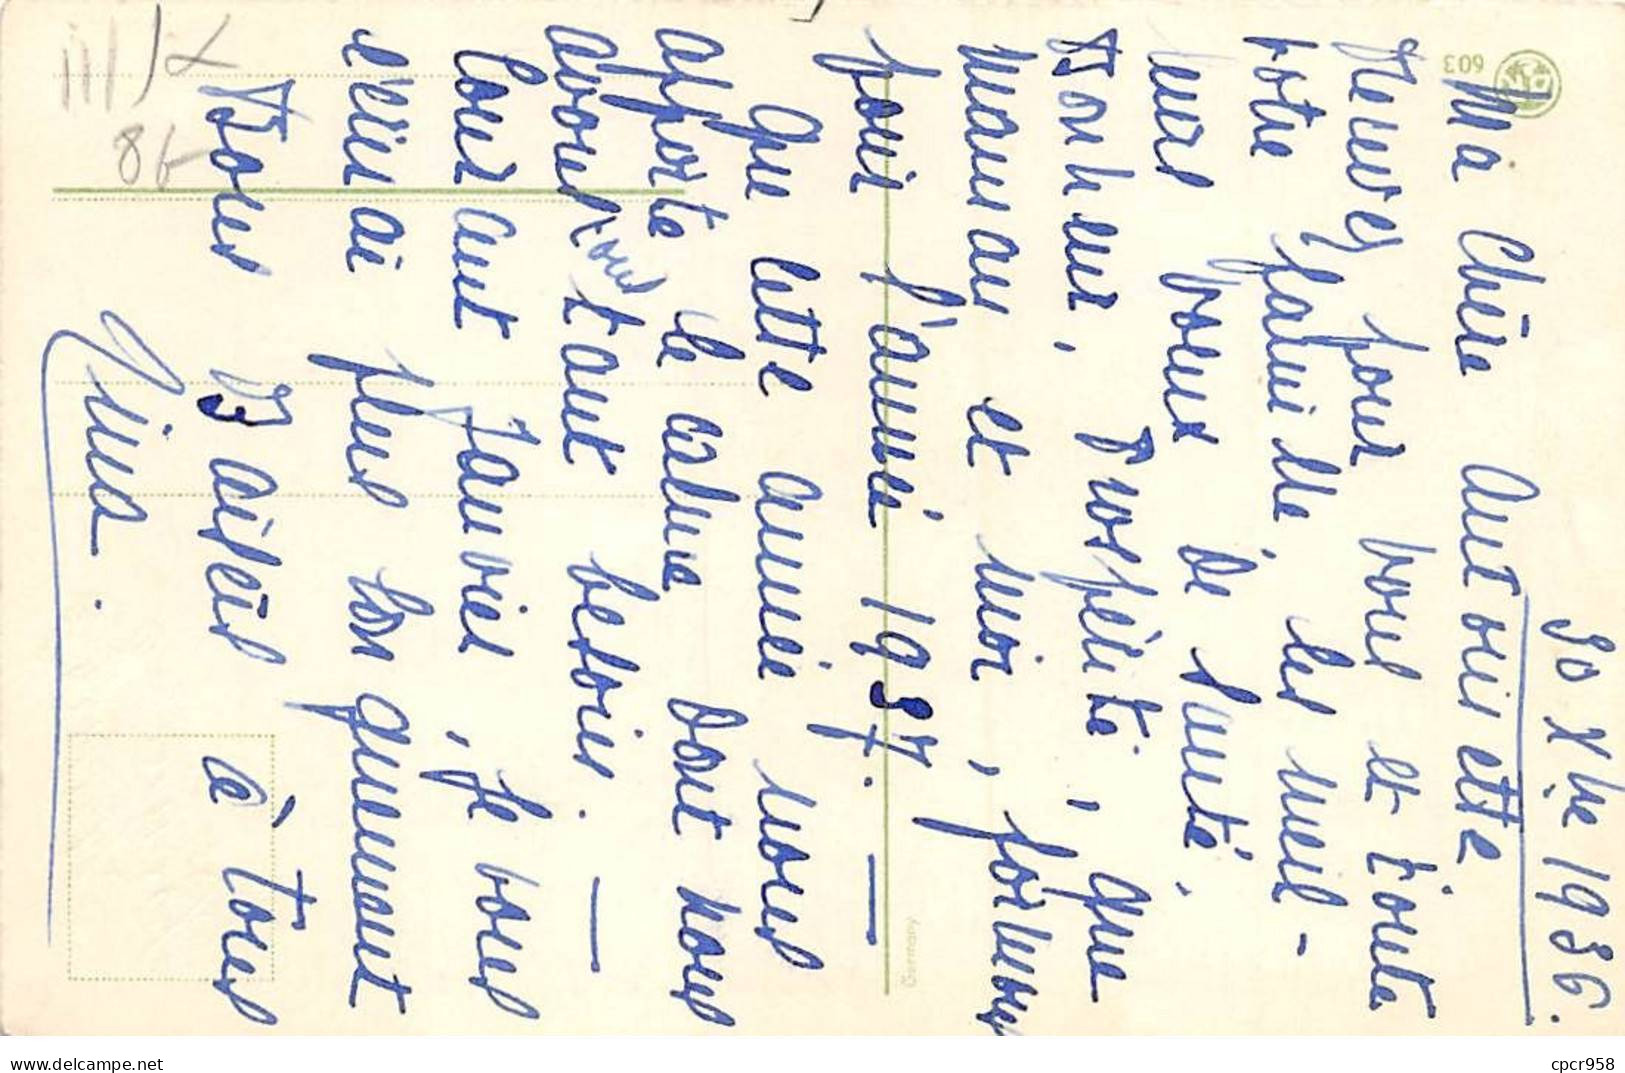 30 Xbre 1936.
Ma Chère Antoinette
Recevez pour vous et toute
votre famille, les meil-
leurs voeux de Santé,
Bonheur, Prospérité, que
maman et moi, formons
pour l'année 1937. —
Que cette année nous
apporte le calme dont nous
avons tous tant besoin. —
Courant Janvier, je vous
écrirai plus longuement
Bons Baisers à Tous
Nina.
603
Germany
III/X
86
www.delcampe.net
cpcr958